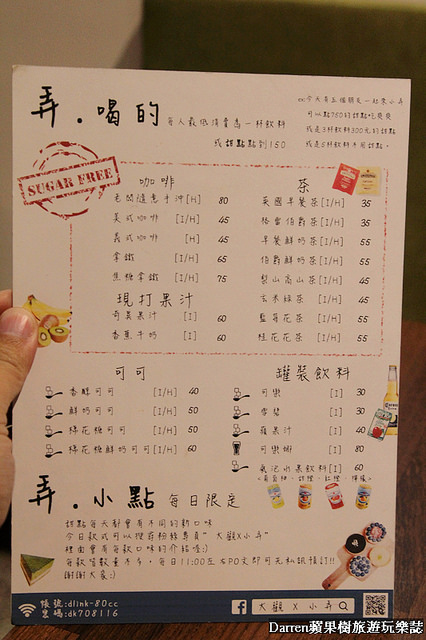 弄.喝的 每人最低消費為一杯飲料
或甜點點到150
ex:今天有五個朋友一起來小弄
可以點750的甜點吃爽爽
或是3杯飲料300元的甜點
或是5杯飲料不用甜點。
SUGAR FREE
咖啡
老闆隨意手沖[H] 80
美式咖啡 [I/H] 45
義式咖啡 [H] 45
拿鐵 [I/H] 65
焦糖拿鐵 [I/H] 75
現打果汁
奇異果汁 [I] 60
香蕉牛奶 [I] 60
茶
英國早餐茶[I/H] 35
格雷伯爵茶[I/H] 35
早餐鮮奶茶[I/H] 55
伯爵鮮奶茶[I/H] 55
梨山高山茶[I/H] 45
玄米綠茶 [I/H] 45
藍莓花茶 [I/H] 55
桂花花茶 [I/H] 55
可可
香醇可可 [I/H] 40
鮮奶可可 [I/H] 50
棉花糖可可 [I/H] 50
棉花糖鮮奶可可[I/H] 60
罐裝飲料
可樂 [I] 30
雪碧 [I] 30
蘋果汁 [I] 40
可樂娜 80
氣泡水果飲料[I] 60
弄.小點 每日限定
甜點每天都會有不同的新口味
今日款式可以搜尋粉絲專頁"大觀X小弄"
裡面會有每款口味的介紹唷:)
每款數量不多,每日11:00在本PO文即可先私訊預訂!!
謝謝大家:)
帳號:dlink-80cc
密碼:dk708116
大觀 X 小弄
Darren蘋果樹旅遊玩樂誌